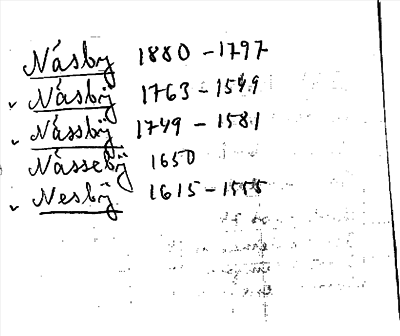 Näsby 1880-1797
v Näsbÿ 1763-1549
v Nässbÿ 1749-1581
Nässebÿ 1650
v Nesbÿ 1615-1555